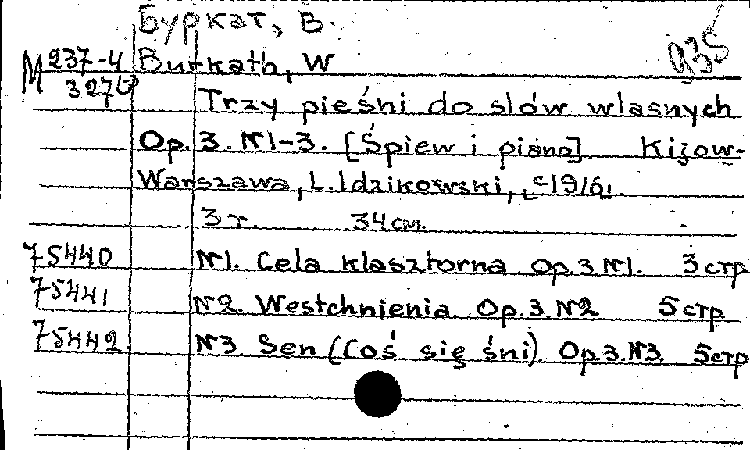 Буркат, В.
935
М 237-4 Burkath, W
327
Trzy pieśni do slów wlasnych
Op. 3. №1-3. [Śpiew i piano] Kijow-
Warszawa, L. Idzikowski, [c1916].
3 т. 34 см.
75440 №1. Cela klasztorna Op. 3 №1. 3 стр
75441 №2 Westchnienia Op. 3. №2 5 стр
75442 №3 Sen (Coś się śni). Op. 3. №3. 5 стр